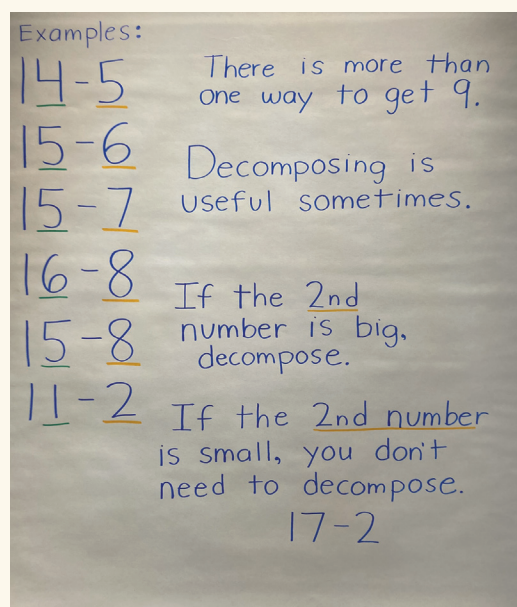 Examples:
14-5
15-6
15-7
16-8
15-8
11-2
There is more than
one way to get 9.
Decomposing is
useful sometimes.
If the 2nd
number is big,
decompose.
If the 2nd number
is small, you don't
need to decompose.
17-2